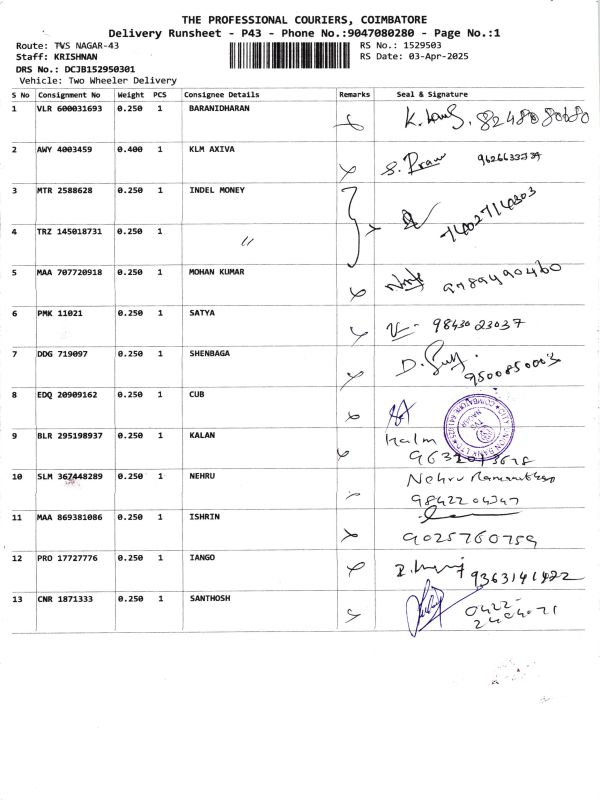 THE PROFESSIONAL COURIERS, COIMBATORE
Delivery Runsheet - P43 - Phone No.:9047080280 - Page No.:1
Route: TVS NAGAR-43
RS No.: 1529503
Staff: KRISHNAN
RS Date: 03-Apr-2025
DRS No.: DCJB152950301
Vehicle: Two Wheeler Delivery
S No Consignment No Weight PCS Consignee Details Remarks Seal & Signature
1 VLR 600031693 0.250 1 BARANIDHARAN
2 AWY 4003459 0.400 1 KLM AXIVA
3 MTR 2588628 0.250 1 INDEL MONEY 7402714303
4 TRZ 145018731 0.250 1 "
5 MAA 707720918 0.250 1 MOHAN KUMAR 9789490460
6 PMK 11021 0.250 1 SATYA 98430 23037
7 DDG 719097 0.250 1 SHENBAGA 9500850003
8 EDQ 20909162 0.250 1 CUB
9 BLR 295198937 0.250 1 KALAN
10 SLM 367448289 0.250 1 NEHRU Nehru
11 MAA 869381086 0.250 1 ISHRIN 9025760759
12 PRO 17727776 0.250 1 IANGO 9363141422
13 CNR 1871333 0.250 1 SANTHOSH 0422-
2404071